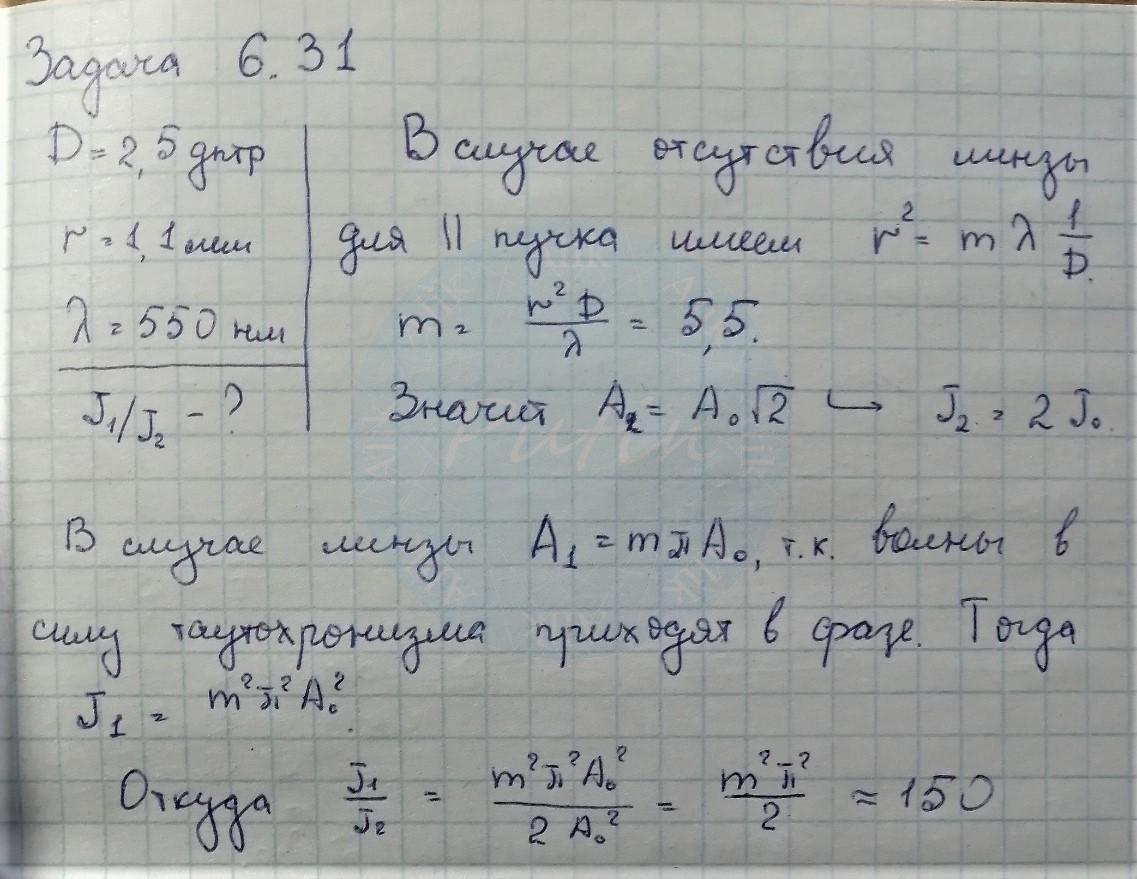 Задача 6.31
D = 2,5 дптр
r = 1,1 мм
λ = 550 нм
J₁/J₂ - ?
В случае отсутствия линзы
для || пучка имеем r² = m λ 1/D.
m = r² D / λ = 5,5.
Значит A₂ = A₀ √2 ↪ J₂ = 2 J₀.
В случае линзы A₁ = m π A₀, т.к. волны в
силу таутохронизма приходят в фазе. Тогда
J₁ = m² π² A₀².
Откуда J₁/J₂ = m² π² A₀² / 2 A₀² = m² π² / 2 ≈ 150